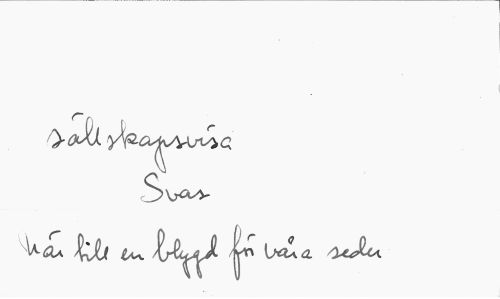 sällskapsvisa
Svar
När till en blygd för våra seder